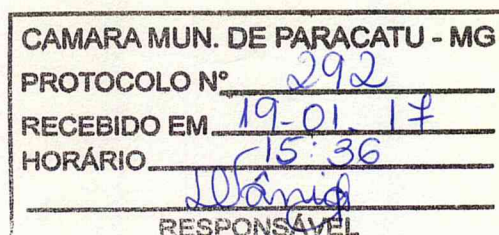 CAMARA MUN. DE PARACATU - MG
PROTOCOLO Nº 292
RECEBIDO EM 19-01.17
HORÁRIO 15:36
Wânia
RESPONSÁVEL